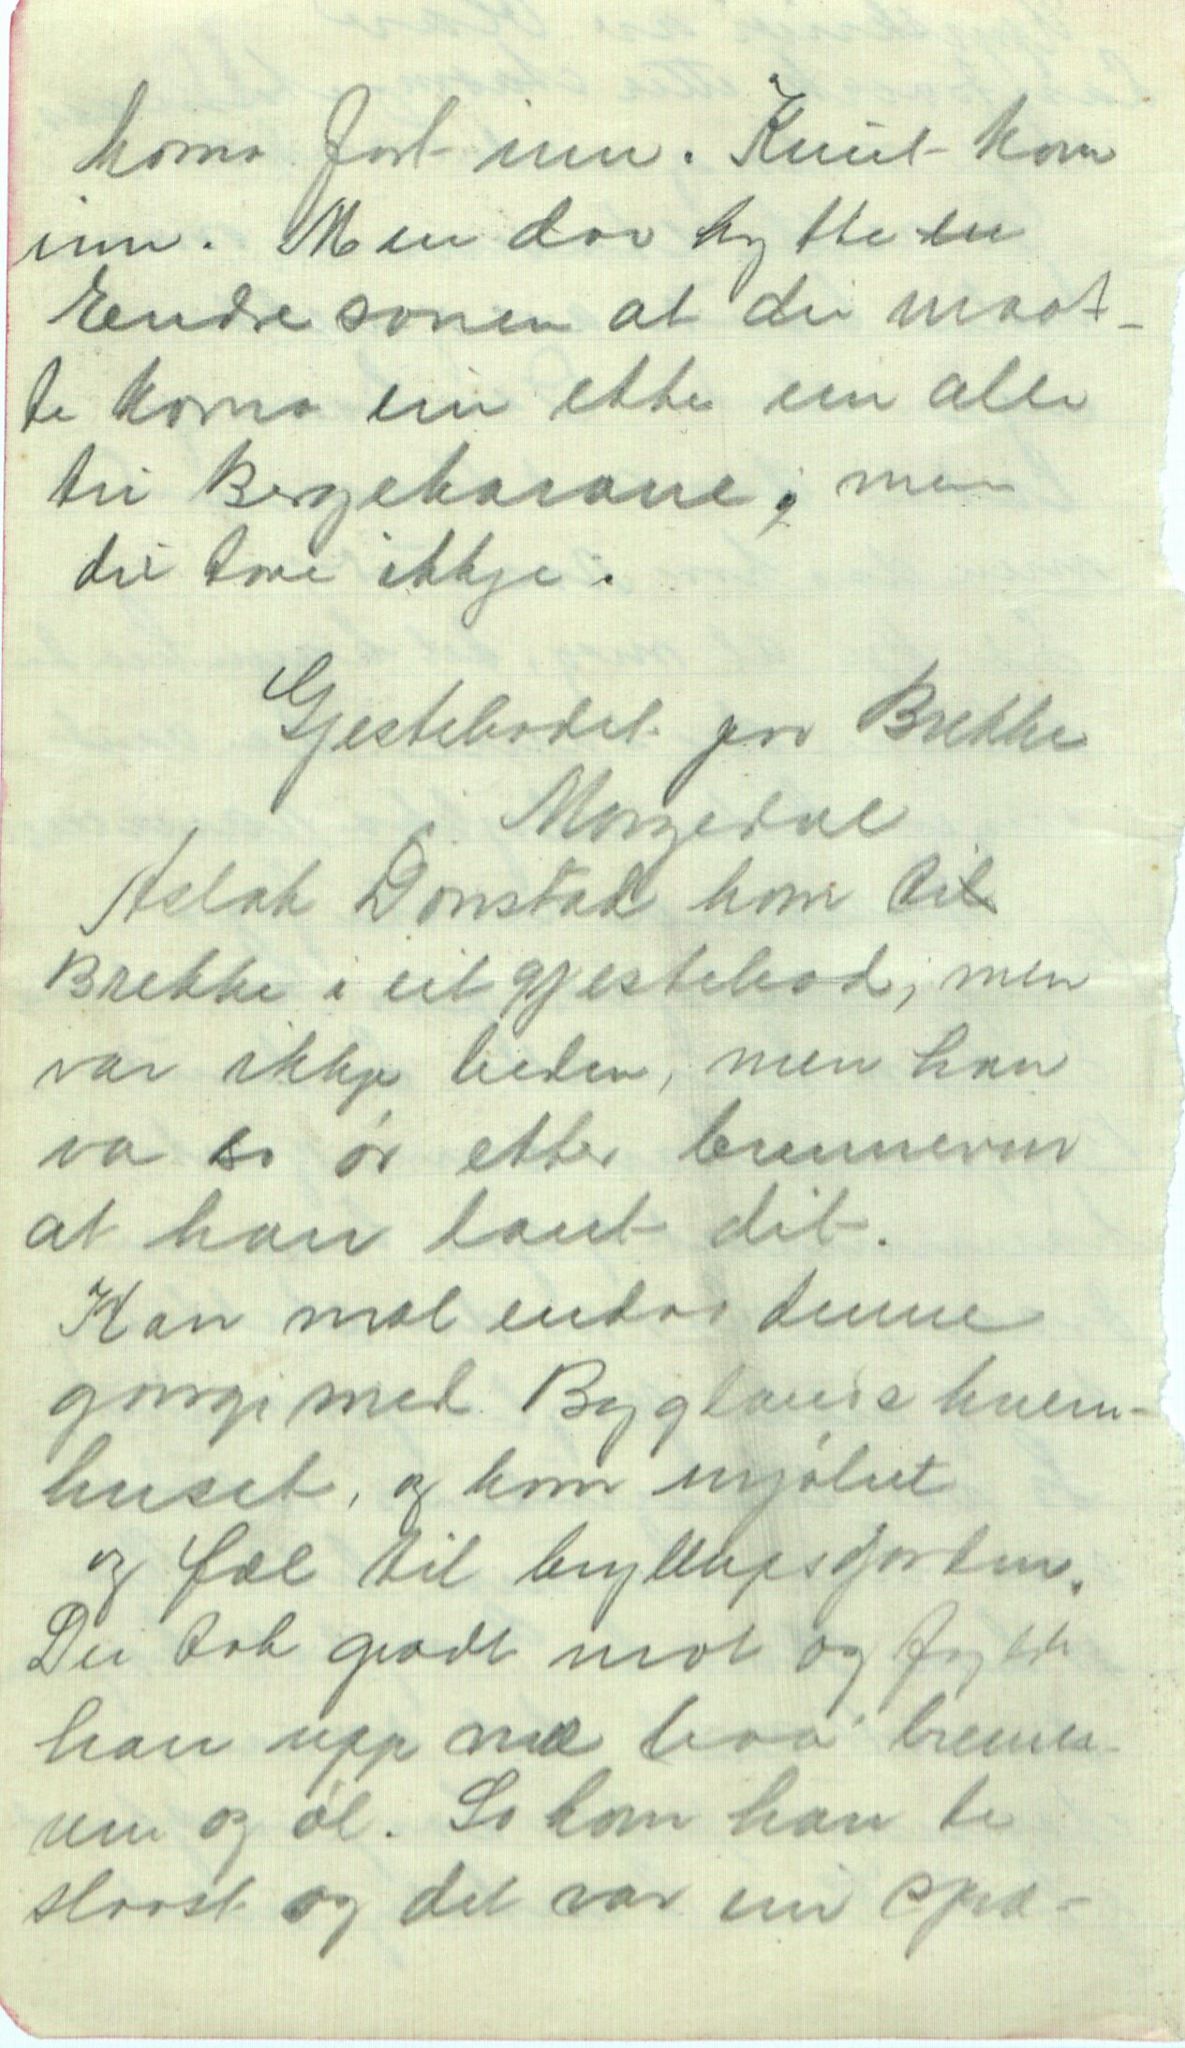 koma fort inn. Knut kom
inn. Men daa bytte en
Endre sonen at dei maat-
te koma ein ette ein alle
tri Bergekarane; men
dei tore ikkje.
Gjestebodet paa Brekke
i Morgedal
Aslak Dønstad kom til
Brekke i eit gjestebod, men
var ikkje beden, men han
va so ør etter brennevin
at han laut dit.
Han mol endaa denne
gongi med Byglands kvenn-
huset, og kom mjølut
og fæl til bryllupsgarden.
Dei tok godt mot og fylte
han upp mæ baa' brenne-
vin og øl. So kom han te
slaast og det var ein spræ-